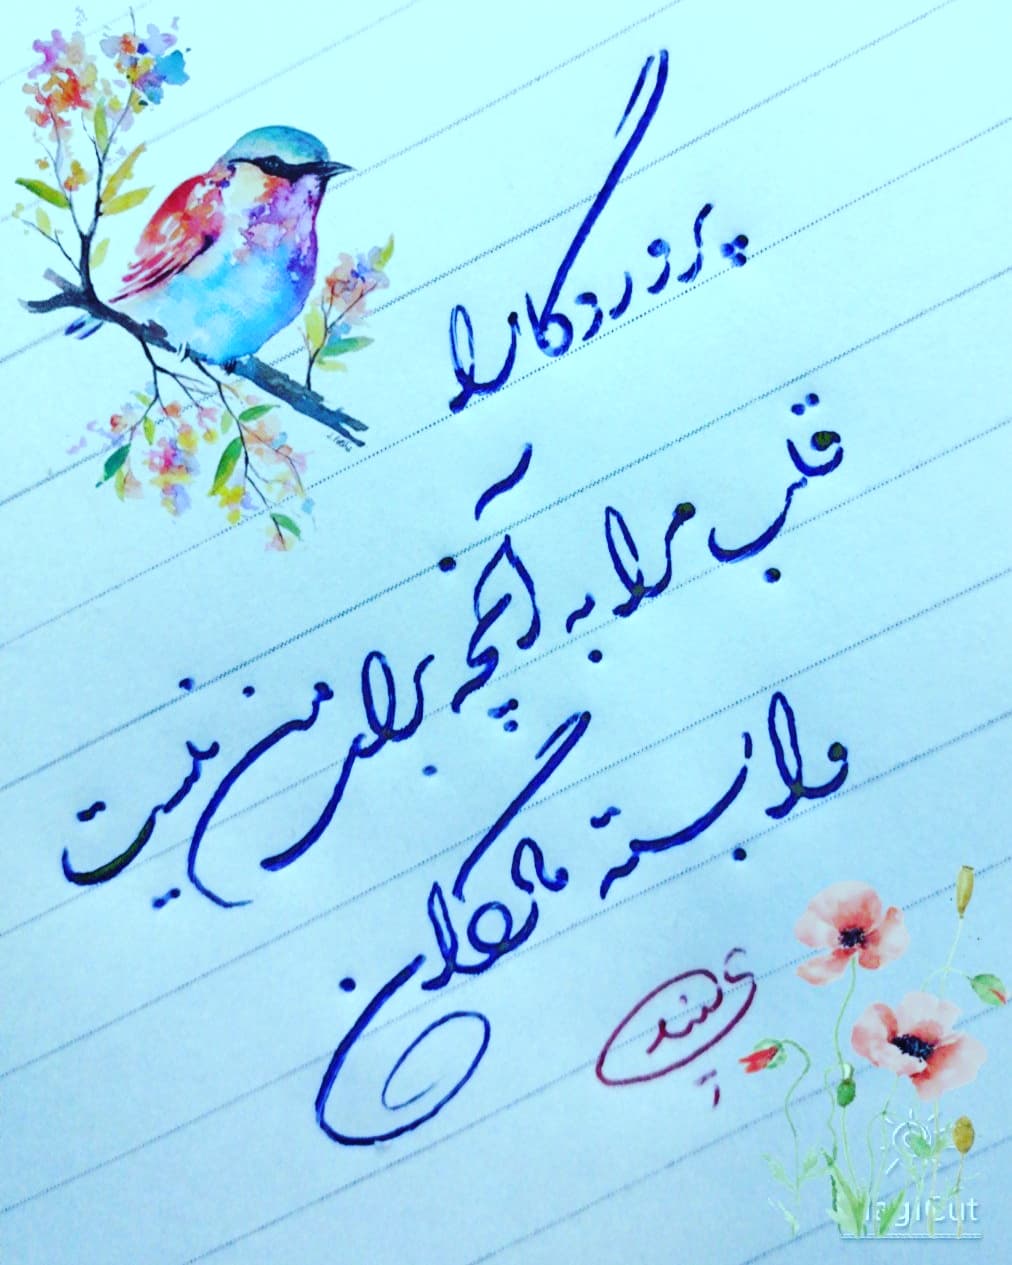 پروردگارا
قلب مرا به آنچه برای من نیست
وابسته مگردان